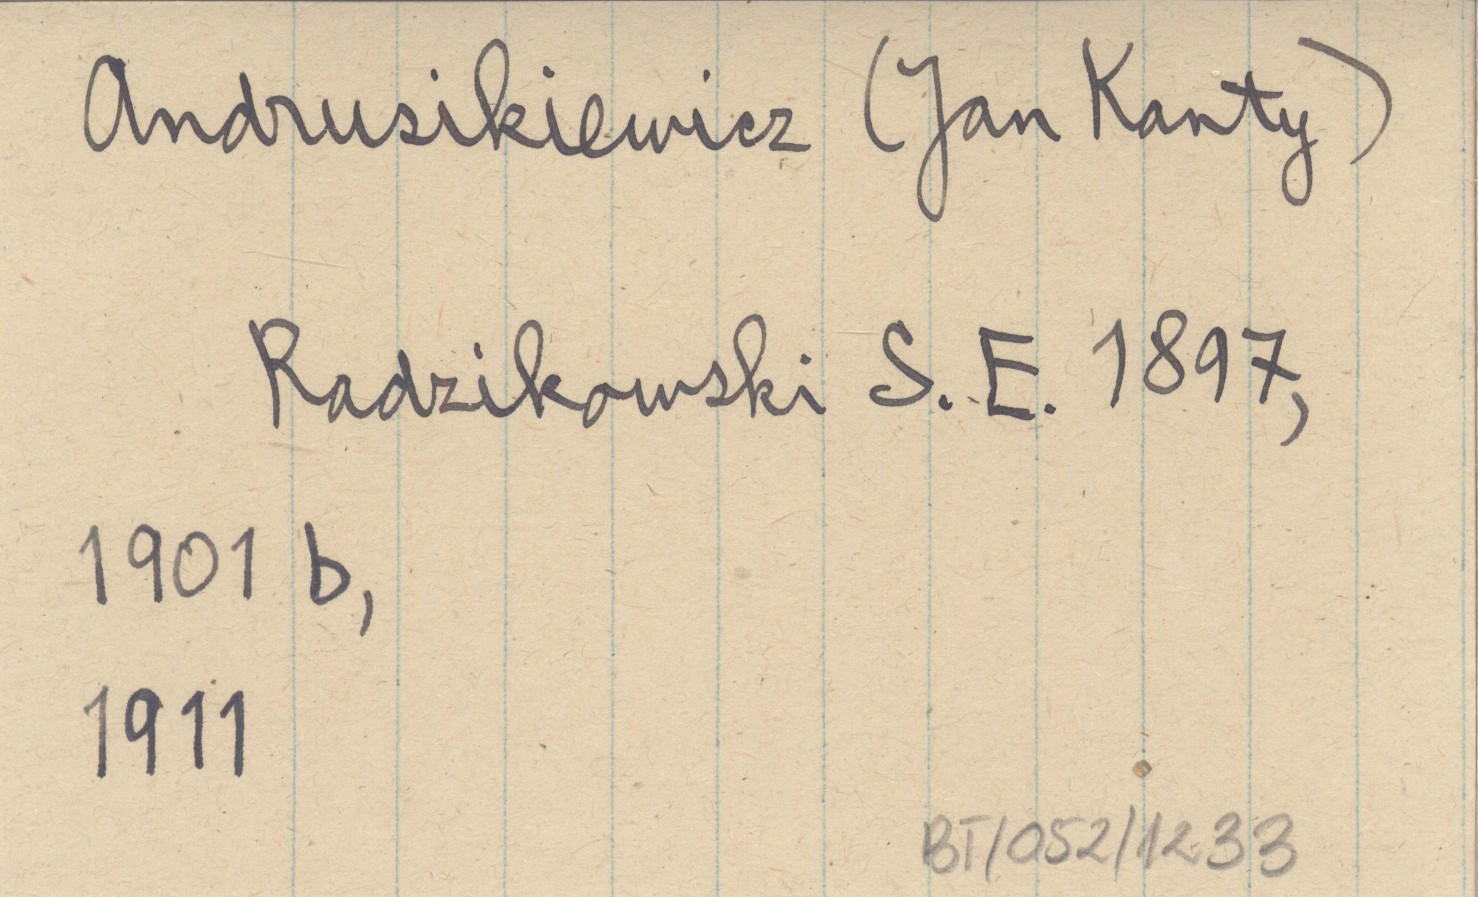 Andrusikiewicz (Jan Kanty)
Radzikowski S. E. 1897,
1901 b,
1911
BT/052/1233